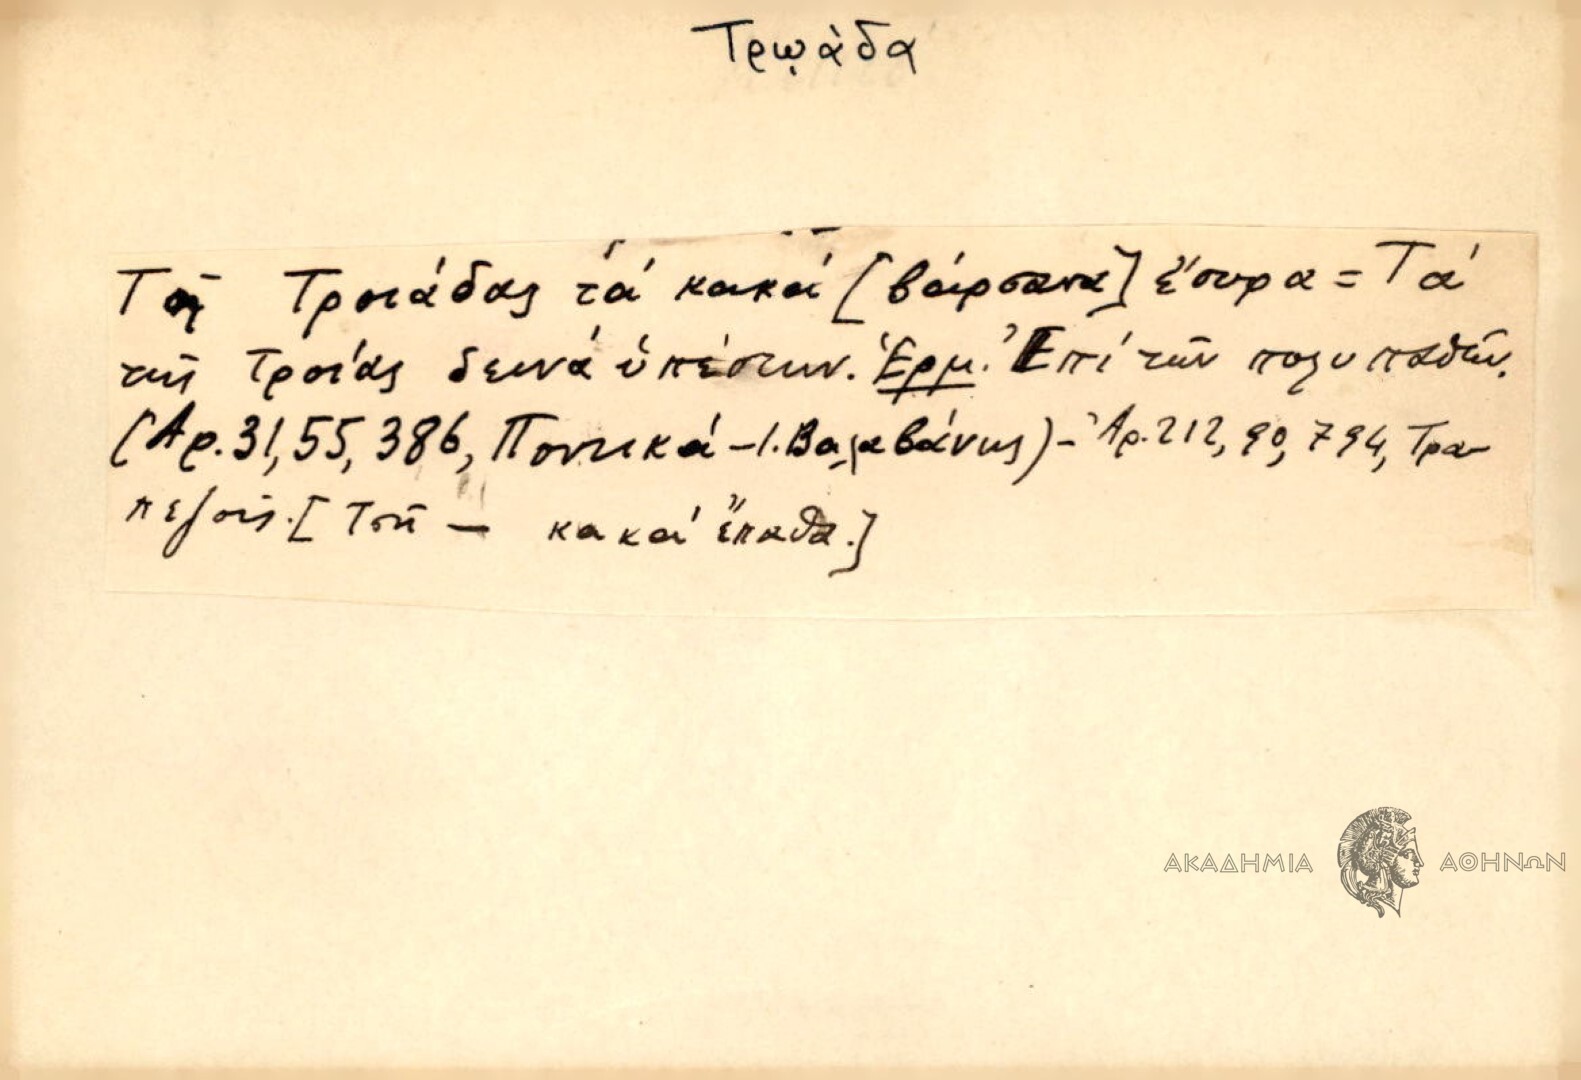 Τρῳάδα
Τσῆ Τροιάδας τά κακά [βάρσανα] ἔσυρα = Τά
τῆς Τροίας δεινά ὑπέστην. Ἑρμ. Ἐπί τῶν πολυπαθῶν.
(Αρ. 31, 55, 386, Ποντικά - Ι. Βαλαβάνης) - Ἀρ. 212, 90, 794, Τρα-
πεζοῦς. [Τσῆ — κακά ἔπαθα.]
ΑΚΑΔΗΜΙΑ ΑΘΗΝΩΝ